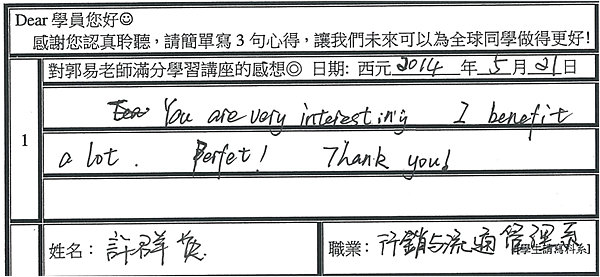 Dear 學員您好☺
感謝您認真聆聽，請簡單寫 3 句心得，讓我們未來可以為全球同學做得更好!
1
對郭易老師滿分學習講座的感想◎ 日期: 西元 2014 年 5 月 21 日
You are very interesting I benefit
a lot. Perfet! Thank you!
姓名： 許群英 職業： 行銷与流通管理系 【學生請寫科系】